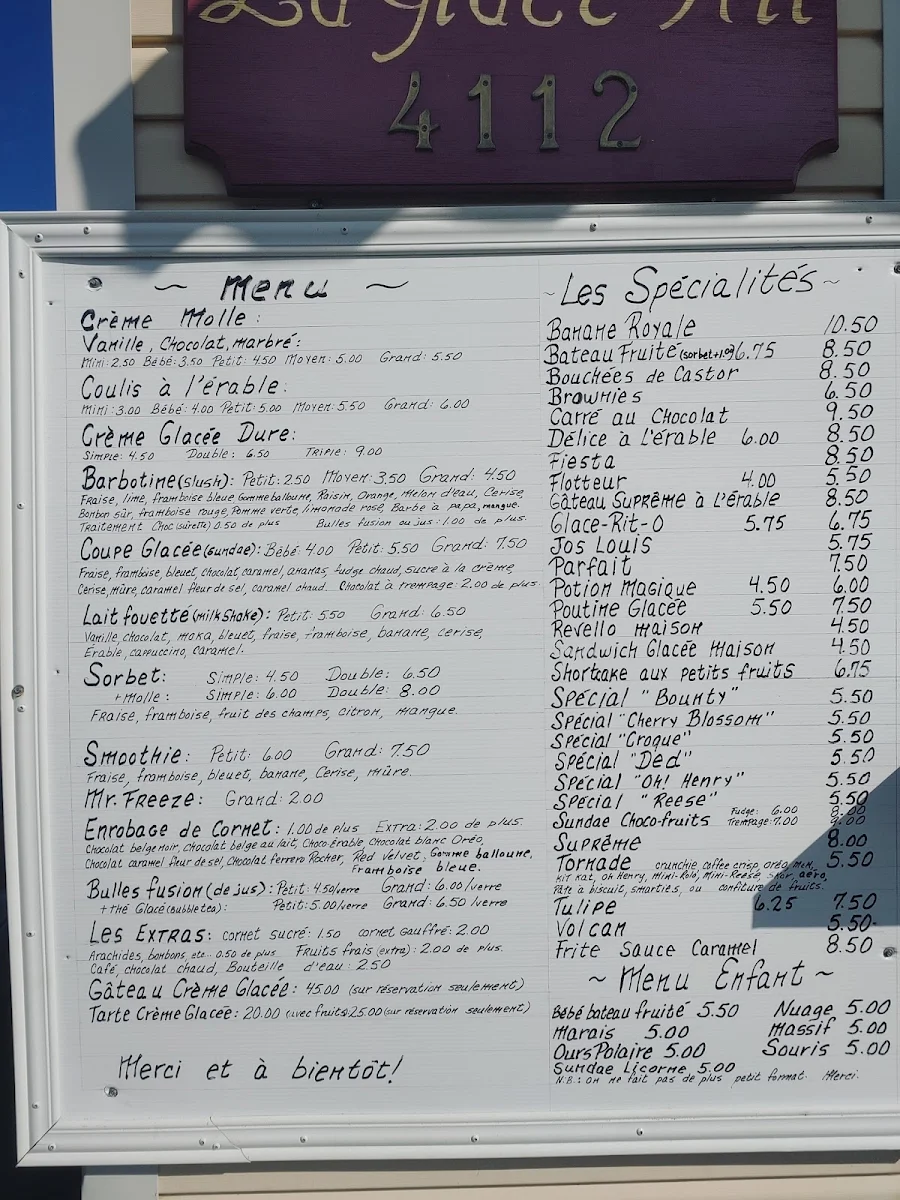 La Glace
4112
~ Menu ~
Crème Molle :
Vanille, Chocolat, marbré :
Mini: 2.50 Bébé: 3.50 Petit: 4.50 Moyen: 5.00 Grand: 5.50
Coulis à l'érable:
Mini: 3.00 Bébé: 4.00 Petit: 5.00 Moyen: 5.50 Grand: 6.00
Crème Glacée Dure:
Simple: 4.50 Double: 6.50 Triple: 9.00
Barbotine (slush): Petit: 2.50 Moyen: 3.50 Grand: 4.50
Fraise, lime, framboise bleue Gomme balloune, Raisin, Orange, Melon d'eau, Cerise,
Bonbon sûr, framboise rouge, Pomme verte, limonade rose, Barbe à papa, mangue.
Traitement Choc (surette) 0.50 de plus Bulles fusion au jus: 1.00 de plus.
Coupe Glacée (sundae): Bébé: 4.00 Petit: 5.50 Grand: 7.50
Fraise, framboise, bleuet, chocolat, caramel, ananas, fudge chaud, sucre à la crème,
Cerise, mûre, caramel fleur de sel, caramel chaud. Chocolat à trempage: 2.00 de plus.
Lait fouetté (milkshake): Petit: 5.50 Grand: 6.50
Vanille, chocolat, moka, bleuet, fraise, framboise, banane, cerise,
Érable, cappuccino, caramel.
Sorbet: Simple: 4.50 Double: 6.50
+ molle : Simple: 6.00 Double: 8.00
Fraise, framboise, fruit des champs, citron, mangue.
Smoothie: Petit: 6.00 Grand: 7.50
Fraise, framboise, bleuet, banane, Cerise, mûre.
Mr. Freeze: Grand: 2.00
Enrobage de Cornet: 1.00 de plus Extra: 2.00 de plus.
Chocolat belge noir, chocolat belge au lait, Choco-Érable, chocolat blanc Oréo,
Chocolat caramel fleur de sel, Chocolat ferrero Rocher, Red Velvet, Gomme balloune,
framboise bleue.
Bulles fusion (de jus): Petit: 4.50/verre Grand: 6.00/verre
+ thé Glacé (Bubble tea): Petit: 5.00/verre Grand: 6.50/verre
Les Extras: cornet sucré: 1.50 cornet Gauffré: 2.00
Arachides, bonbons, etc.. 0.50 de plus Fruits frais (extra): 2.00 de plus.
Café, chocolat chaud, Bouteille d'eau: 2.50
Gâteau Crème Glacée: 45.00 (sur réservation seulement)
Tarte Crème Glacée: 20.00 (avec fruits) 25.00 (sur réservation seulement)
Merci et à bientôt!
~ Les Spécialités ~
Banane Royale 10.50
Bateau Fruité (sorbet+1.00) 6.75 8.50
Bouchées de Castor 8.50
Brownies 6.50
Carré au Chocolat 9.50
Délice à L'érable 6.00 8.50
Fiesta 8.50
Flotteur 4.00 5.50
Gâteau Suprême à L'érable 8.50
Glace-Rit-O 5.75 6.75
Jos Louis 5.75
Parfait 7.50
Potion Magique 4.50 6.00
Poutine Glacée 5.50 7.50
Revello maison 4.50
Sandwich Glacée Maison 4.50
Shortcake aux petits fruits 6.75
Spécial "Bounty" 5.50
Spécial "Cherry Blossom" 5.50
Spécial "Croque" 5.50
Spécial "Ded" 5.50
Spécial "Oh! Henry" 5.50
Spécial "Reese" 5.50
Sundae Choco-fruits Fudge: 6.00 8.00
Trempage: 7.00 9.00
Suprême 8.00
Tornade crunchie, coffee crisp, oréo, 5.50
Kit Kat, oh Henry, mini-Rolo, Mini-Reese, skor, aéro,
Pâte à biscuit, smarties, ou confiture de fruits.
Tulipe 6.25 7.50
Volcan 5.50
Frite Sauce Caramel 8.50
~ Menu Enfant ~
Bébé bateau fruité 5.50 Nuage 5.00
Marais 5.00 Massif 5.00
Ours Polaire 5.00 Souris 5.00
Sundae Licorne 5.00
N.B.: on ne fait pas de plus petit format. Merci.